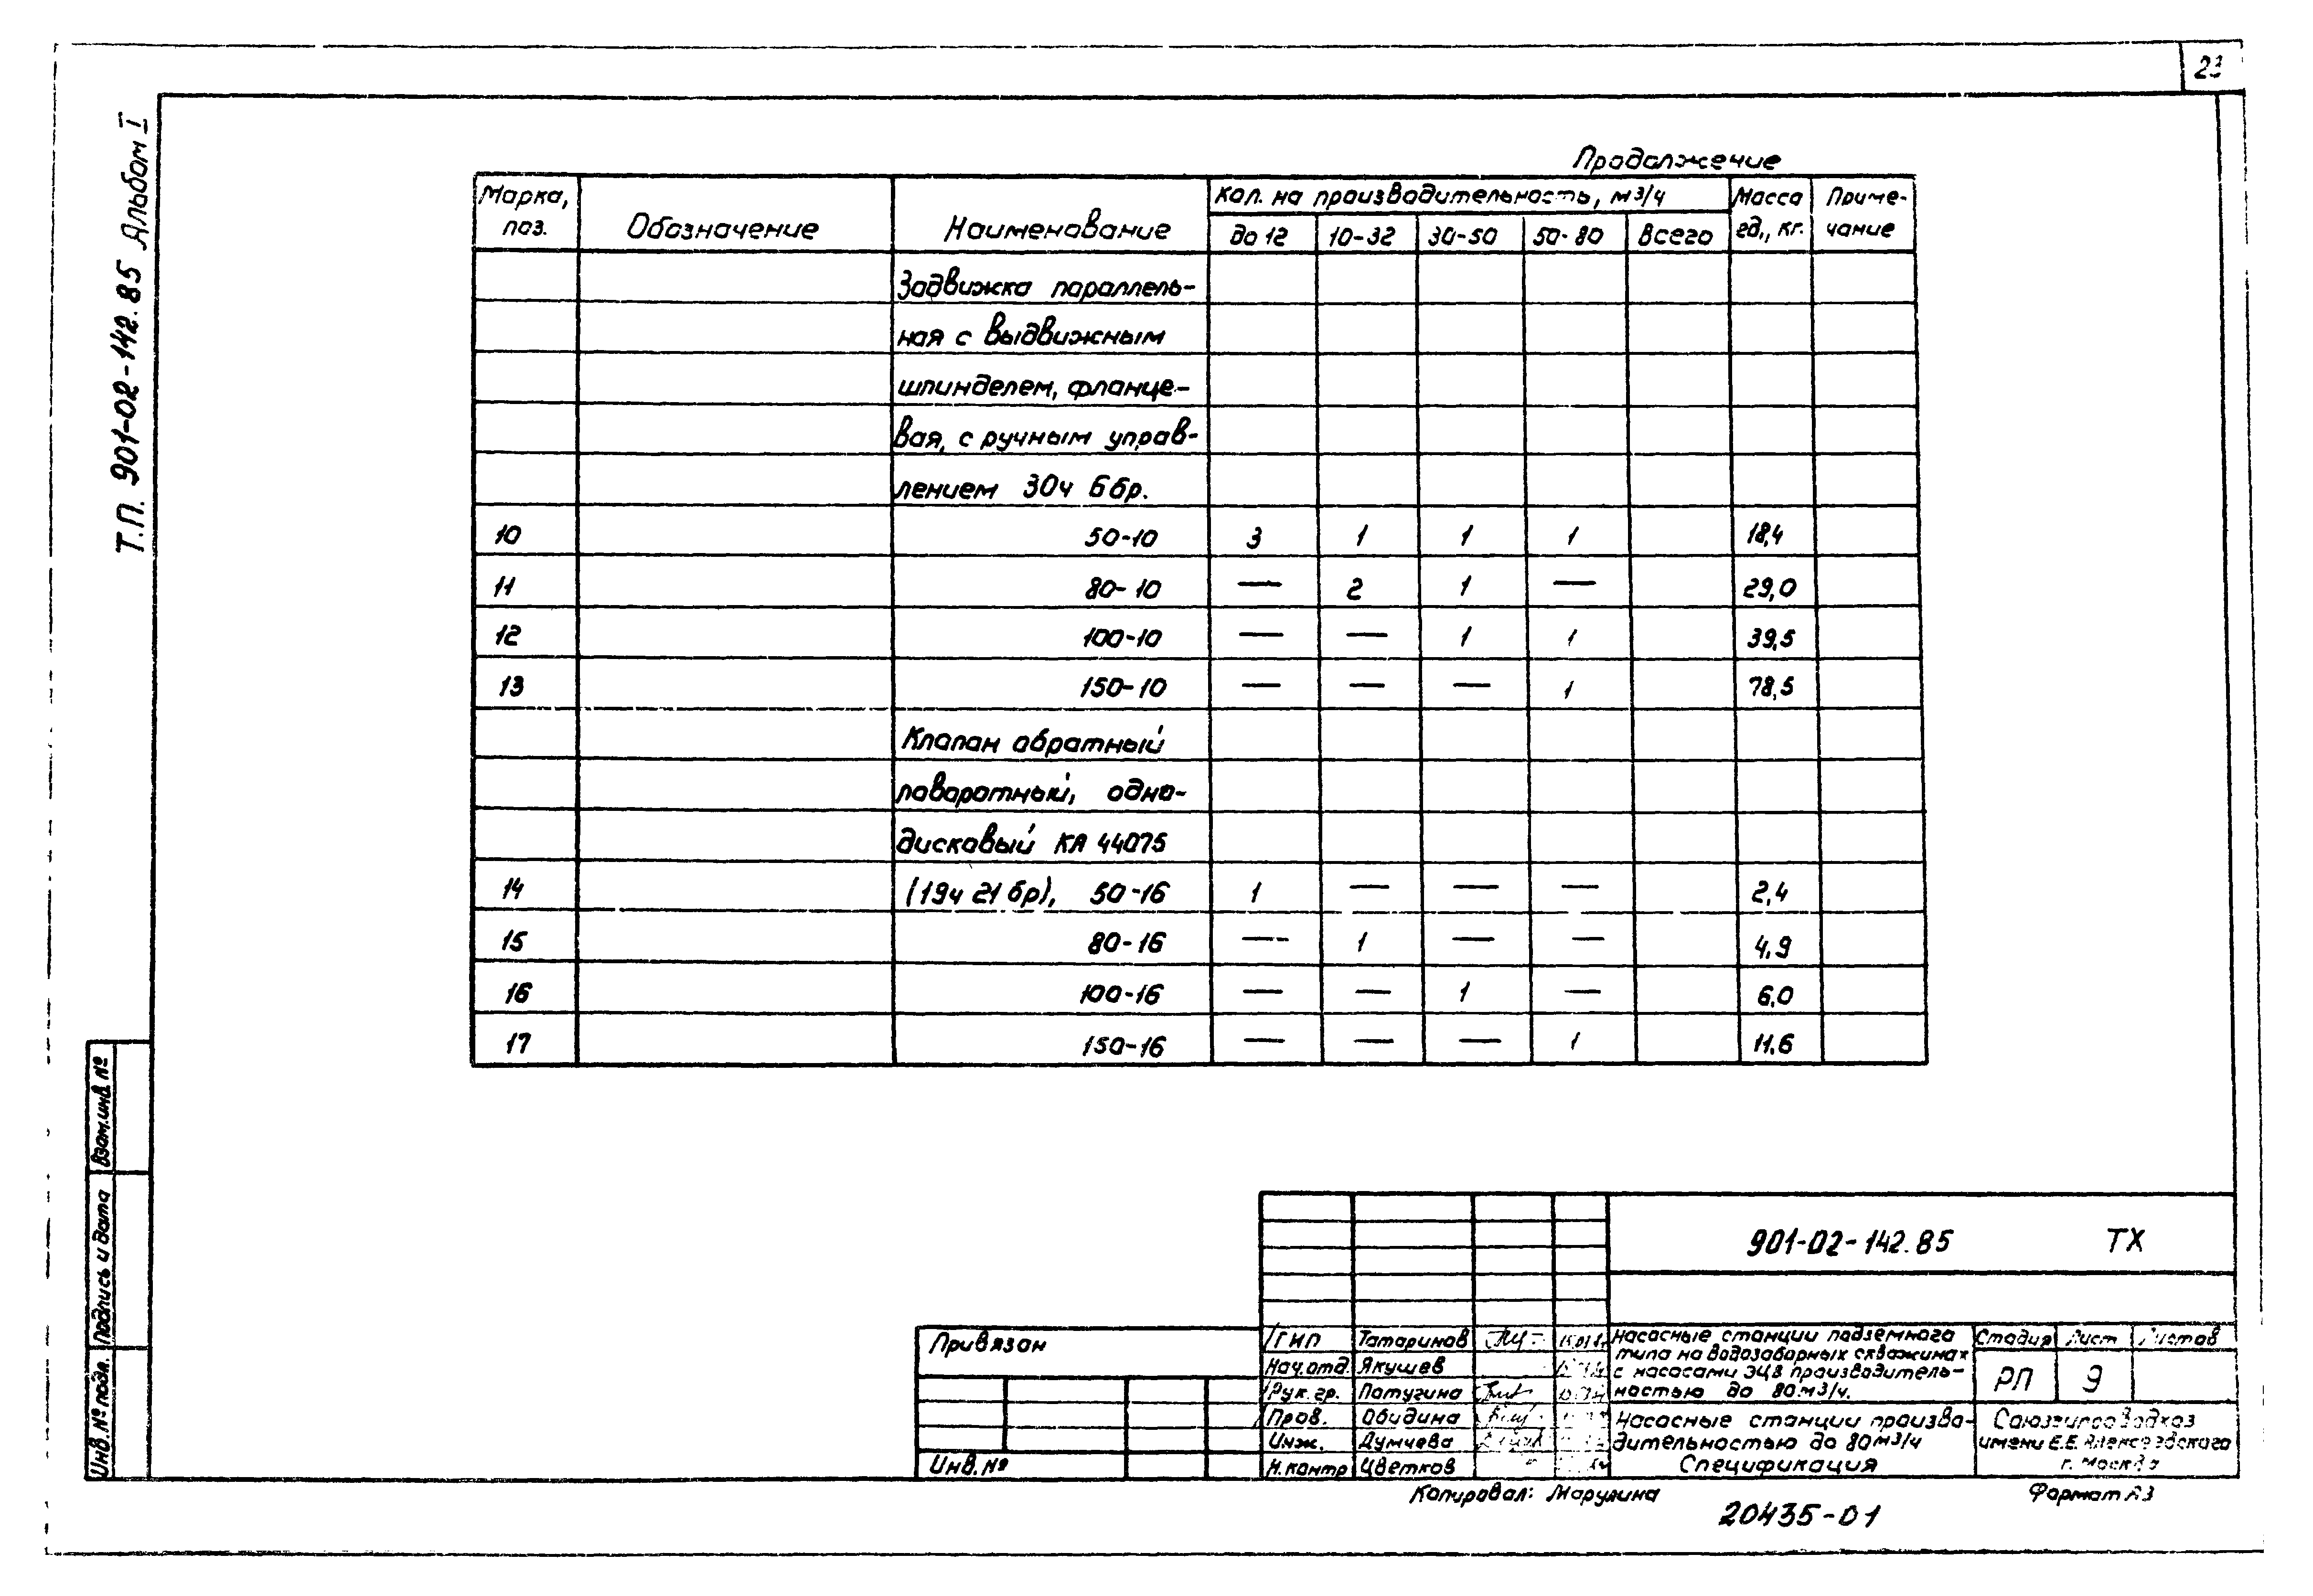 23
Т.П. 901-02-142.85 Альбом I
Продолжение
Марка, поз. Обозначение Наименование Кол. на производительность, м3/ч Масса ед., кг. Приме-чание
до 12 10-32 30-50 50-80 Всего
Задвижка параллель-
ная с выдвижным
шпинделем, фланце-
вая, с ручным управ-
лением 30ч 6бр.
10 50-10 3 1 1 1 18,4
11 80-10 — 2 1 — 29,0
12 100-10 — — 1 1 39,5
13 150-10 — — — 1 78,5
Клапан обратный
поворотный, одно-
дисковый КА 44075
14 (19ч 21 бр), 50-16 1 — — — 2,4
15 80-16 — 1 — — 4,9
16 100-16 — — 1 — 6,0
17 150-16 — — — 1 11,6
Взам.инв.№
Подпись и дата
Инв.№ подл.
901-02-142.85 ТХ
Привязан
Инв.№
ГИП Татаринов
Нач.отд. Якушев
Рук.гр. Потугина
Пров. Обидина
Инж. Думчева
Н.контр Цветков
Насосные станции подземного
типа на водозаборных скважинах
с насосами ЭЦВ производитель-
ностью до 80м3/ч.
Стадия Лист Листов
РП 9
Насосные станции произво-
дительностью до 80м3/ч
Спецификация
Союзгипроводхоз
имени Е.Е. Алексеевского
г. Москва
Копировал: Марулина
Формат А3
20435-01